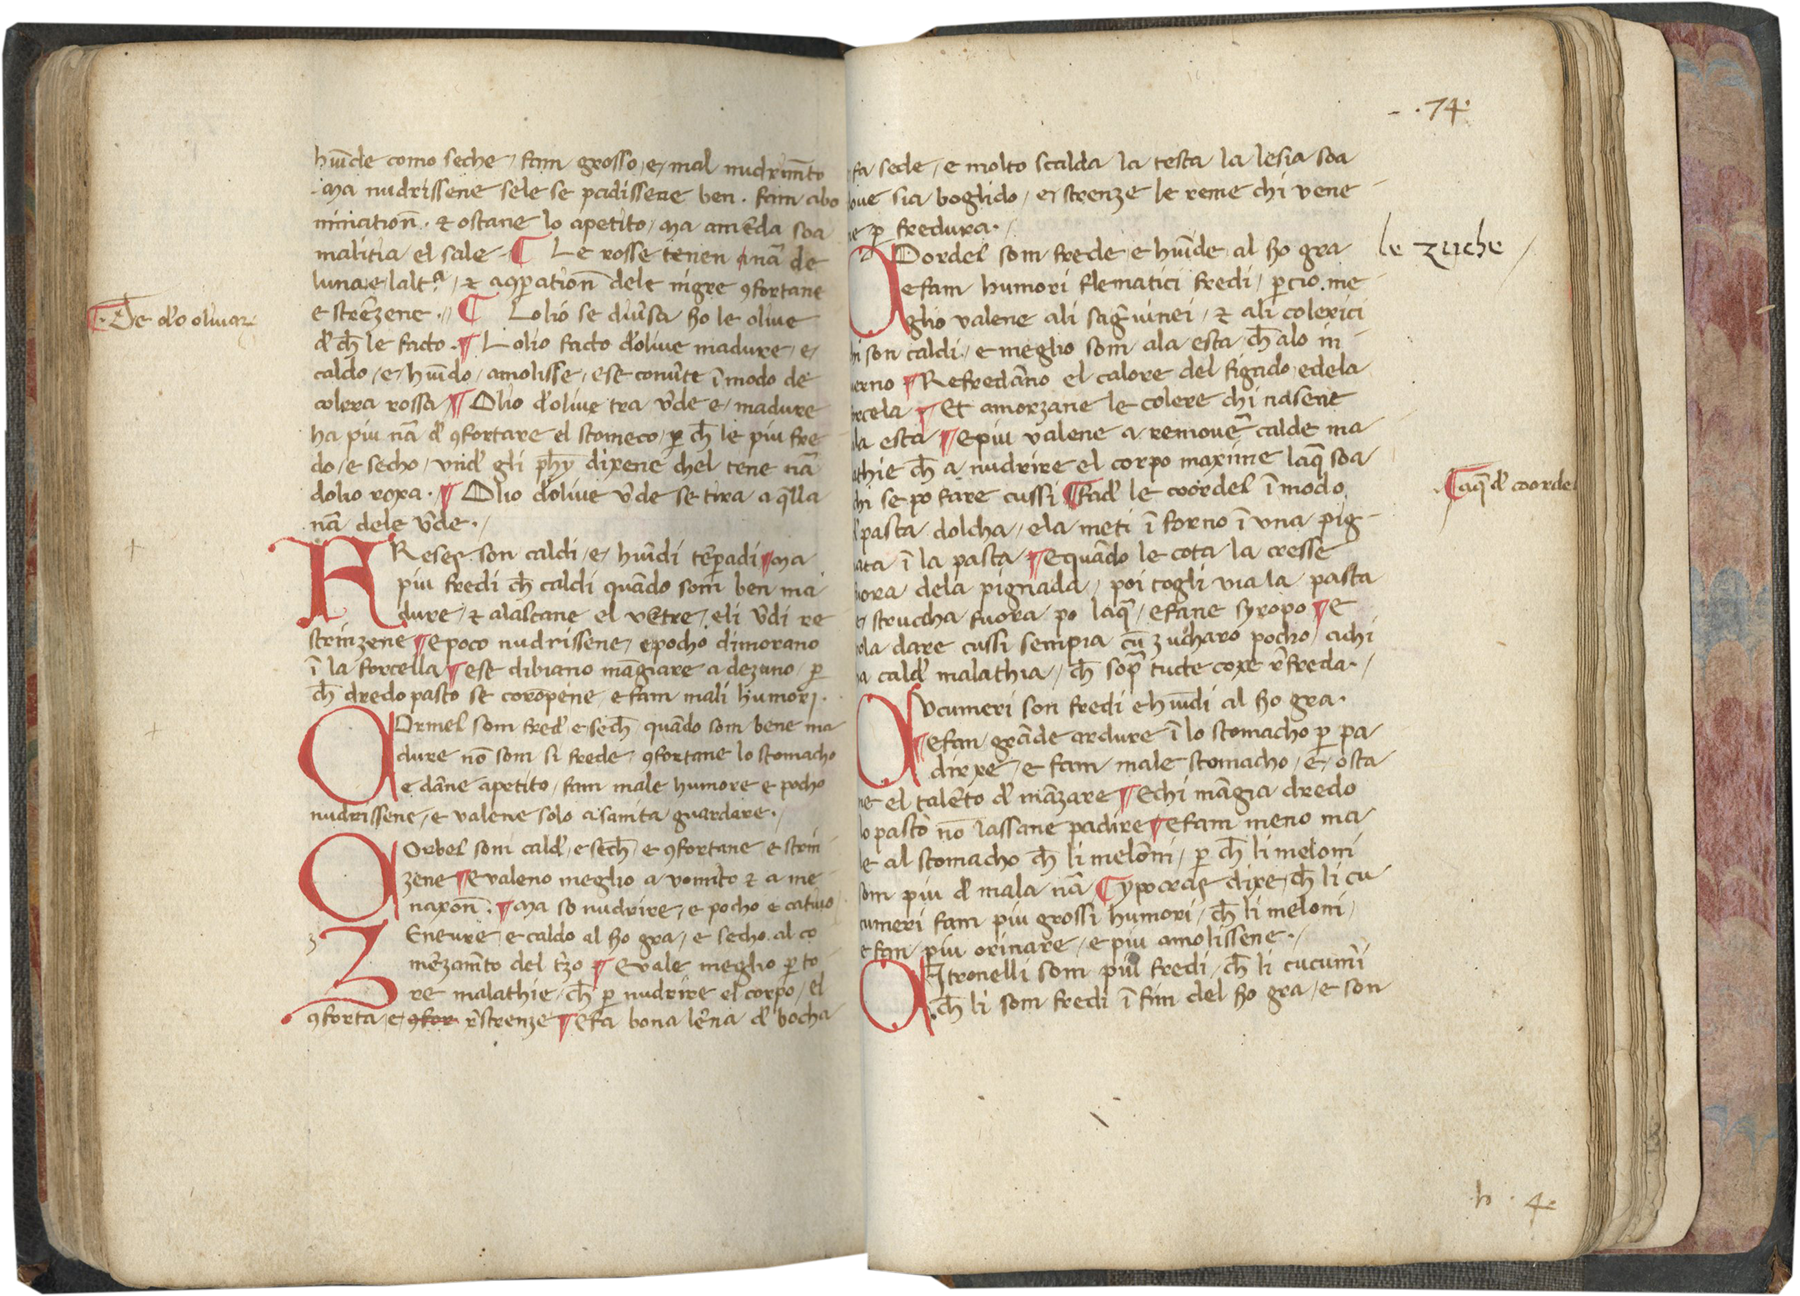 hūide como seche, fam grosso, e, mal nudrimēto
. Ma nudrissene sele se padissene ben. fam abo
minationē. & ostane lo apetito, ma amēda soa
malitia, el sale. ¶ Le rosse tenen nãa de
luna e laltᵃ, & aoperationē dele nigre ɔfortane
e strēzene. ¶ Lolio se diũsa sõ le olive
¶ De olio olivaꝝ
đ ch̄ le facto. ¶ Lolio facto dolive madure, e,
caldo, e, hūido, amolisse, e se convte ĩ modo de
colera rossa ¶ Olio dolive tra v̄de e, madure
ha piu nãa đ ɔfortare el stomeco, ꝑ ch̄ le piu fre
do, e secho, vnđ gli ph̄y dixene chel tene nãa
dolio roxa. ¶ Olio dolive v̄de se tira a q̄lla
nãa dele v̄de.
PReses son caldi, e, hūidi tēꝑadi ¶ Ma
piu fredi ch̄ caldi quādo som ben ma
dure, & alascane el vētre, eli v̄di re
strinzene ¶ e poco nudrissene, e pocho dimorano
ĩ la forcella ¶ e se dibiano māgiare a dezuno, ꝑ
ch̄ dredo pasto se corōpene, e fam mali humori.
COrmel som fređ e sech̄ quādo som bene ma
dure nō som si frede, ɔfortane lo stomacho
e dāne apetito, fam male humore e pocho
nudrissene, e valene solo a sanita guardare.
COrbel som calđ, e sech̄ e ɔfortane e strin
zene ¶ E valeno meglio a vomito & a me
naxonē. ¶ Ma so nudrire, e pocho e cativo
3
ZEnevre e caldo al sõ gra, e secho al co
mēzamēto del t̄zo ¶ E vale meglio ꝑ to
re malathie, ch̄ ꝑ nudrire el corpo, el
ɔforta, e, ɔfor r̄strenze ¶ e fa bona lēna đ bocha
. 74.
fa sede, e molto scalda la testa la lesia soa
ove sia boglido, e, strenze le reme chi vene
ne ꝑ fredura.
COordel som frede e hūide al sõ gra
le zuche
e fam humori flematici fredi, ꝑcio. me
glio valene ali sāguinei, & ali colerici
hi son caldi, e meglio som ala esta ch̄ alo in
verno ¶ Refredāno el calore del figado e dela
rcela ¶ Et amorzane le colere chi nasene
la esta ¶ e piu valene a remover̄ calde ma
athie ch̄ a nudrire el corpo maxime laq̄ soa
chi se po fare cussi ¶ Fađ le coordel ĩ modo
¶ aq̄ đ coordel
đ pasta dolcha, e la meti ĩ forno ĩ una pig
nata ĩ la pasta ¶ E quādo le cota la cresse
fuora dela pignada, poi togli via la pasta
e, struccha fuora po laq̄, e fane syropo ¶ E
vola dare cussi sempia cū zucharo pocho, achi
ha calđ malathia, ch̄ soꝑ tucte coxe r̄freda.
CVcumeri son fredi e hūidi al sõ gra.
¶ e fan grāde ardure ĩ lo stomacho ꝑ pa
dirxe, e fam male stomacho, e, osta
ne el talēto đ māzare ¶ E chi māgia dredo
lo pasto nō lassane padire ¶ e fam meno ma
le al stomacho ch̄ li melōni, ꝑ ch̄ li meloni
som piu đ mala nãa ¶ Ypocras dixe, ch̄ li cu
cumeri fam piu grossi humori, ch̄ li meloni,
e fan piu orinare, e piu amolissene.
CItronelli som piu fredi, ch̄ li cucum̄i
. ch̄ li som fredi ĩ fin del sõ gra, e son
h . 4.